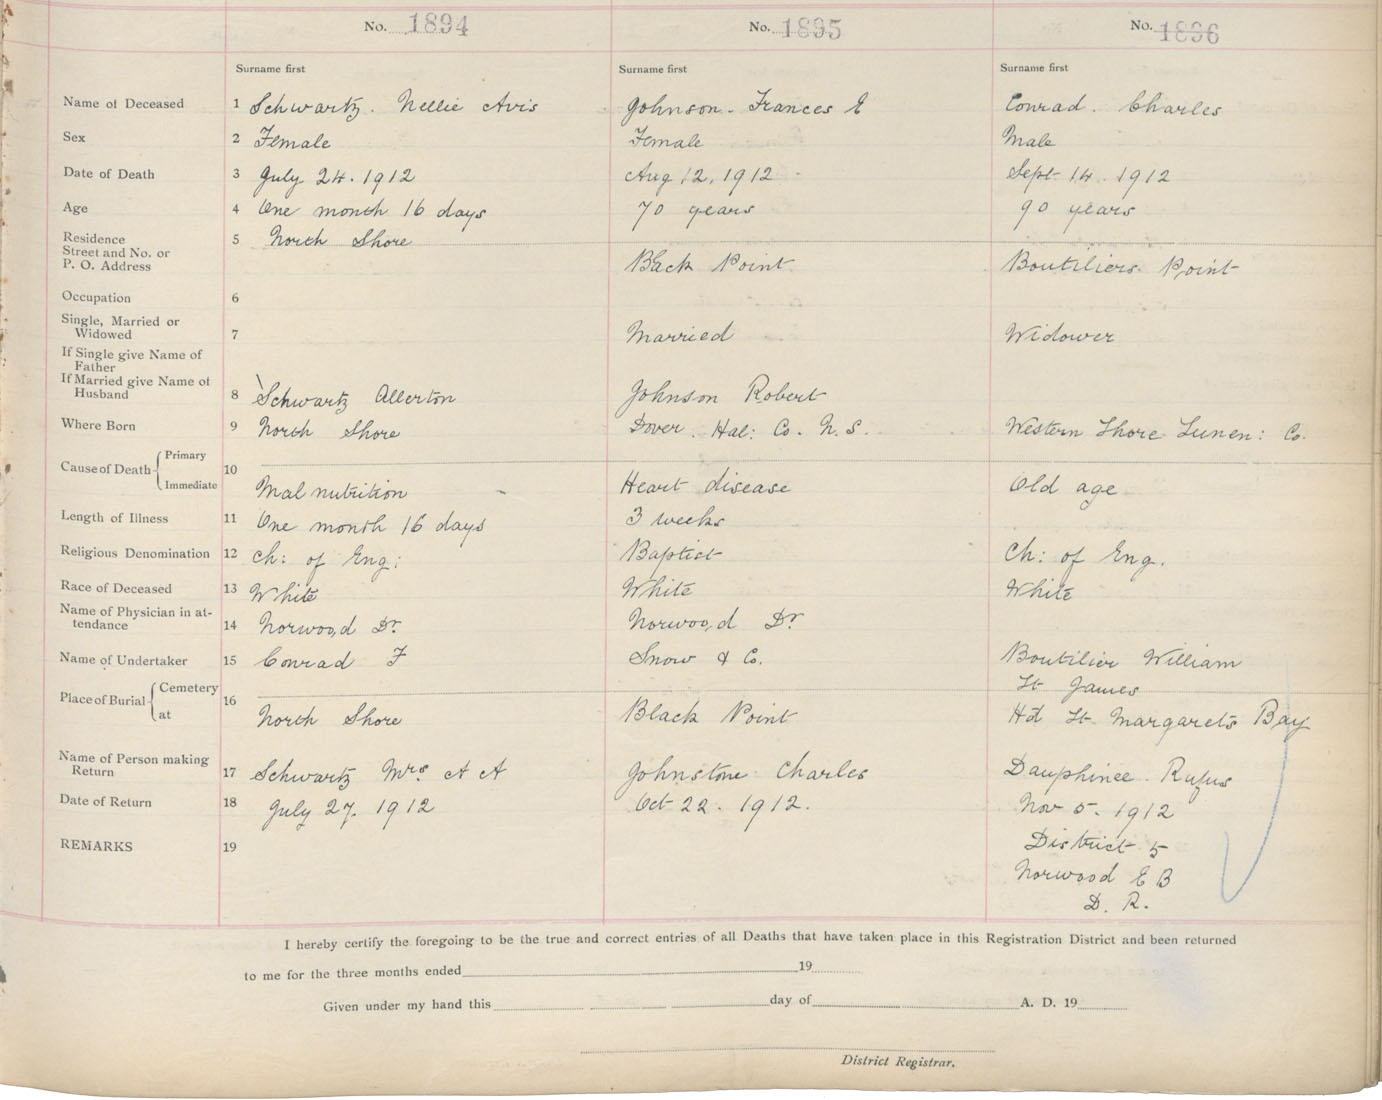 No. 1894 No. 1895 No. 1896
Surname first Surname first Surname first
Name of Deceased 1 Schwartz. Nellie Avis Johnson. Frances E Conrad. Charles
Sex 2 Female Female Male
Date of Death 3 July 24. 1912 Aug 12, 1912 Sept 14. 1912
Age 4 One month 16 days 70 years 90 years
Residence 5 North Shore
Street and No. or
P. O. Address Black Point Boutiliers Point
Occupation 6
Single, Married or
Widowed 7 Married Widower
If Single give Name of
Father
If Married give Name of
Husband 8 Schwartz Allerton Johnson Robert
Where Born 9 North Shore Dover. Hal: Co. N. S. Western Shore Lunen: Co.
Cause of Death Primary 10
Immediate Mal nutrition Heart disease Old age
Length of Illness 11 One month 16 days 3 weeks
Religious Denomination 12 Ch: of Eng: Baptist Ch: of Eng.
Race of Deceased 13 White White White
Name of Physician in at-
tendance 14 Norwood Dr. Norwood Dr
Name of Undertaker 15 Conrad F Snow & Co. Boutilier William
Place of Burial Cemetery 16 St James
at North Shore Black Point Hd St Margarets Bay
Name of Person making
Return 17 Schwartz Mrs A A Johnstone Charles Dauphinee. Rufus
Date of Return 18 July 27. 1912 Oct 22. 1912. Nov 5. 1912
REMARKS 19 District 5
Norwood E B
D. R.
I hereby certify the foregoing to be the true and correct entries of all Deaths that have taken place in this Registration District and been returned
to me for the three months ended 19
Given under my hand this day of A. D. 19
District Registrar.